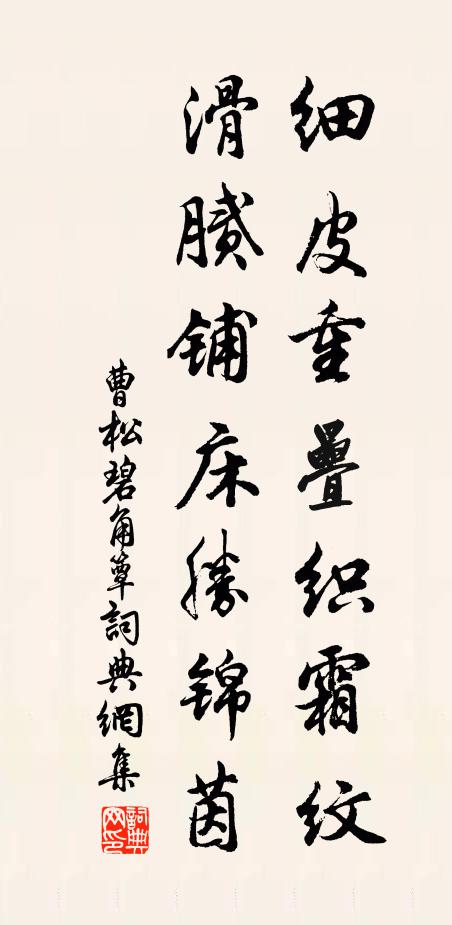 细皮重疊织霜纹
滑腻铺床勝锦茵
曹松碧角簟詞典網集
詞典网印